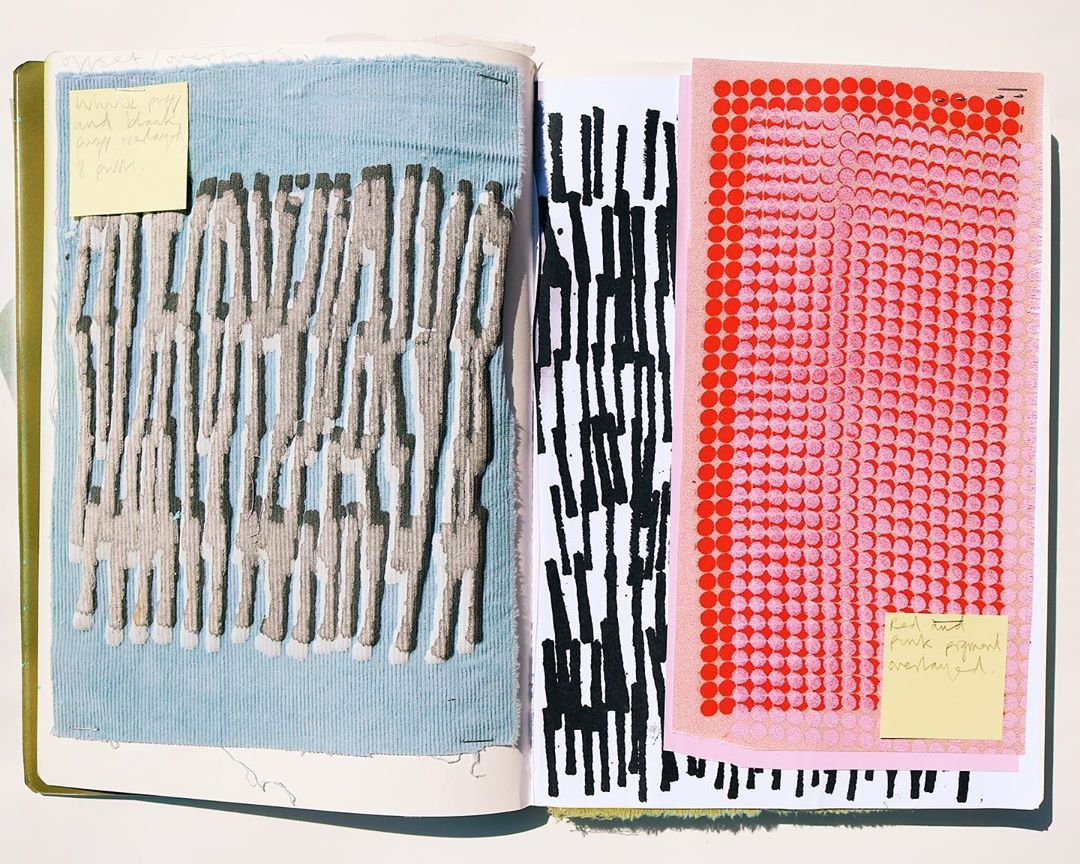 offset/overlays
White puff
and black
puff overlayed
Red and
pink pigment
overlayed.